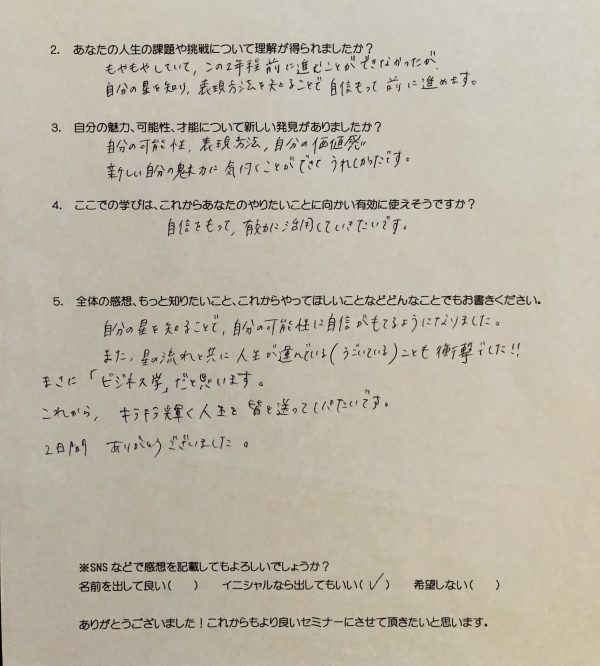 2. あなたの人生の課題や挑戦について理解が得られましたか？
もやもやしていて、この2年程前に進むことができなかったが、
自分の星を知り、表現方法を知ることで自信もって前に進めます。
3. 自分の魅力、可能性、才能について新しい発見がありましたか？
自分の可能性、表現方法、自分の価値感
新しい自分の魅力に気付くことができてうれしかったです。
4. ここでの学びは、これからあなたのやりたいことに向かい有効に使えそうですか？
自信をもって、有効に活用していきたいです。
5. 全体の感想、もっと知りたいこと、これからやってほしいことなどどんなことでもお書きください。
自分の星を知ることで、自分の可能性に自信がもてるようになりました。
また、星の流れと共に人生が運んでいる(うごいている)ことも衝撃でした!!
まさに「ビジネス学」だと思います。
これから、キラキラ輝く人生を皆を送っていきたいです。
2日間 ありがとうございました。
※SNSなどで感想を記載してもよろしいでしょうか？
名前を出して良い(　) イニシャルなら出してもいい(✓) 希望しない(　)
ありがとうございました！これからもより良いセミナーにさせて頂きたいと思います。